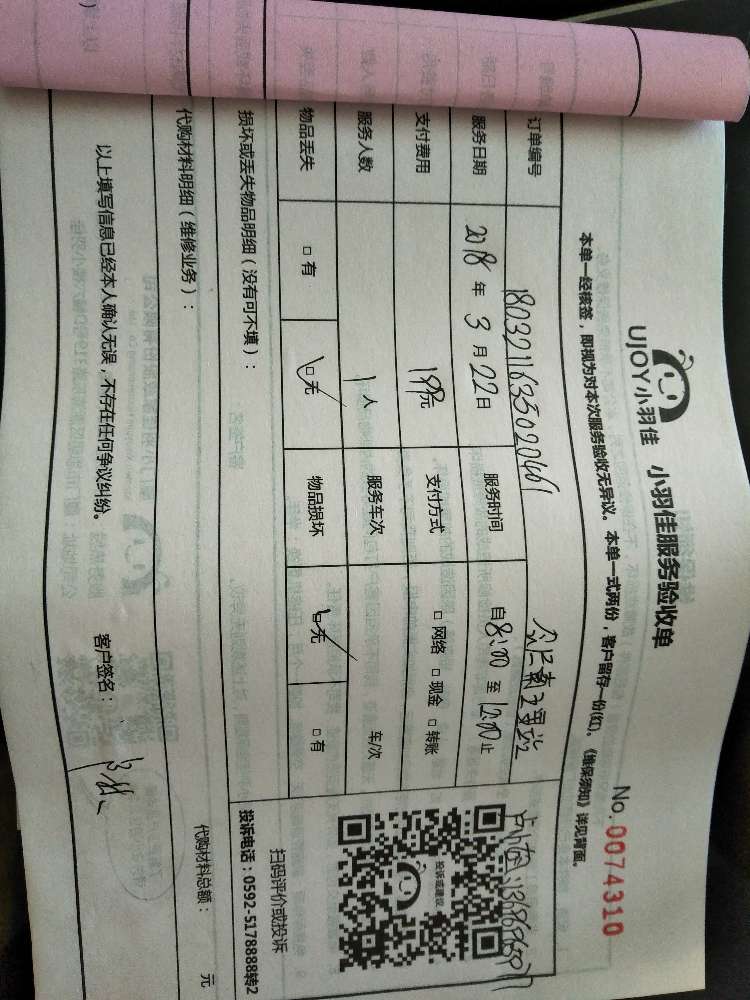 UJOY小羽佳 小羽佳服务验收单
No. 0074310
本单一经核签，即视为对本次服务验收无异议。本单一式两份，客户留存一份(红)。《维保须知》详见背面。
订单编号
服务日期 2018年3月22日 服务时间 自8:00至12:00止
支付费用 198元 支付方式 □网络 □现金 □转账
服务人数 1人 服务车次 车/次
物品丢失 □有 □无 物品损坏 □无 □有
投诉或建议
扫码评价或投诉
投诉电话：0592-5178888转2
损坏或丢失物品明细（没有可不填）：
代购材料明细（维修业务）：
代购材料总额： 元
以上填写信息已经本人确认无误，不存在任何争议纠纷。 客户签名：